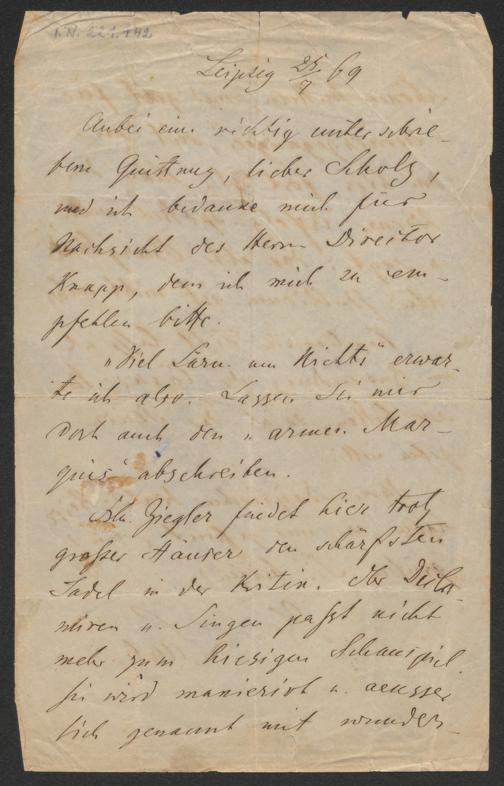 I.N. 221.742
Leipzig 25/7 69
Anbei eine richtig unterschrie-
bene Quittung, lieber Scholz,
und ich bedanke mich für
Nachsicht des Herrn Director
Knapp, dem ich mich zu em-
pfehlen bitte.
"Viel Lärm um Nichts" erwar-
te ich also. Lassen Sie mir
doch auch den "armen Mar-
quis" abschreiben.
Ziegler findet hier trotz
großer Häuser den schärfsten
Tadel in der Kritik. Ihr Dekla-
miren u. Singen paßt nicht
mehr zum hiesigen Schauspiel
Sie wird manierirt u. aeusser
lich genannt mit wunder-